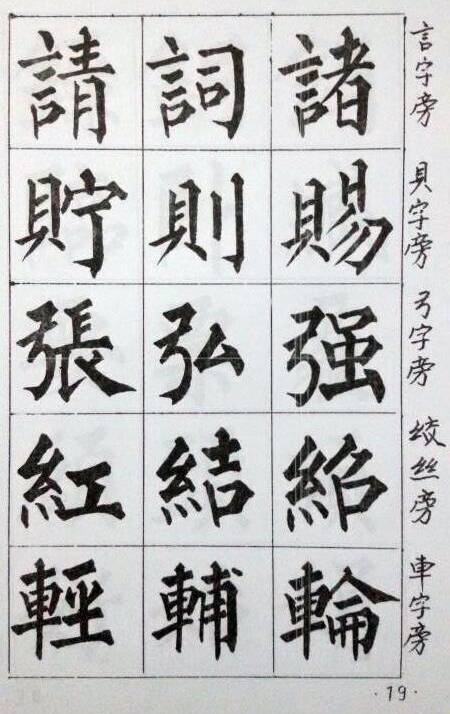 言字旁
諸 詞 請
貝字旁
賜 則 貯
弓字旁
强 弘 張
绞丝旁
紹 結 紅
車字旁
輪 輔 輕
·19·